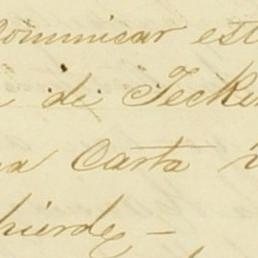 Comunicar est
de Tecker
a Carta
pierde -